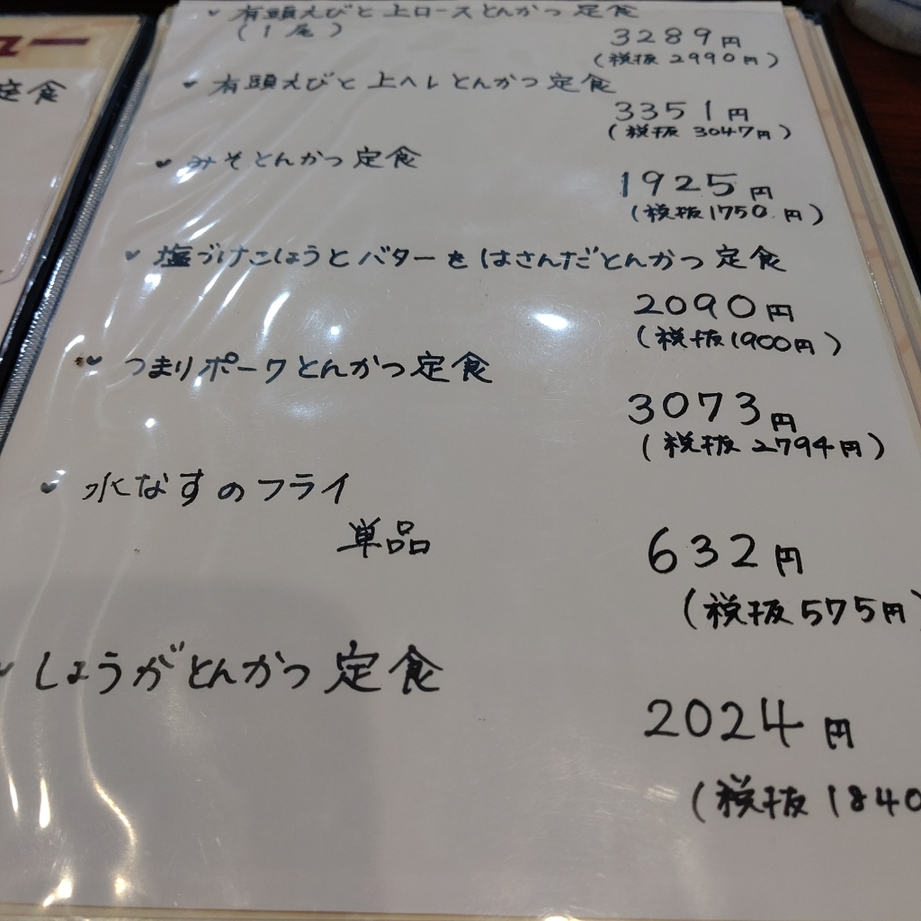 ュー
定食
有頭えびと上ロースとんかつ定食
(1尾)
3289円
(税抜 2990円)
有頭えびと上ヘレとんかつ定食
3351円
(税抜 3047円)
みそとんかつ定食
1925円
(税抜1750円)
塩づけこしょうとバターをはさんだとんかつ定食
2090円
(税抜1900円)
つまりポークとんかつ定食
3073円
(税抜 2794円)
水なすのフライ
単品
632円
(税抜575円)
しょうがとんかつ定食
2024円
(税抜 1840